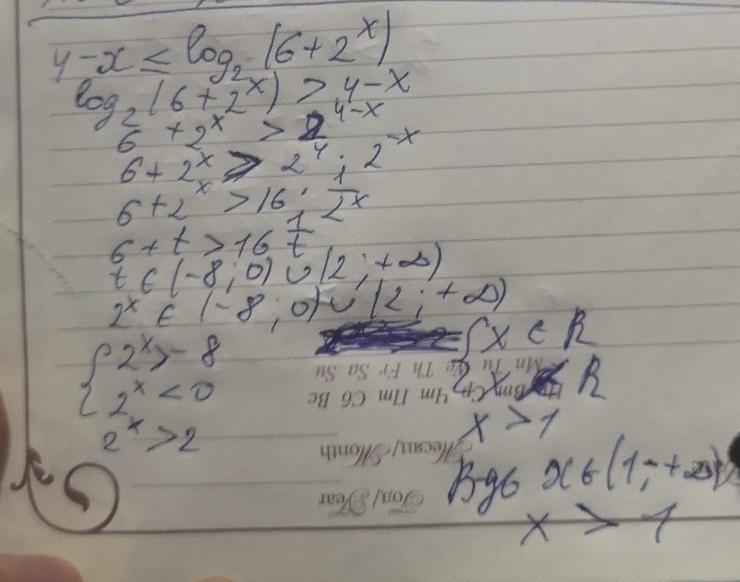 4-x ≤ log₂(6+2^x)
log₂(6+2^x) > 4-x
6 + 2^x > 2^4-x
6 + 2^x > 2^4 · 2^-x
6 + 2^x > 16 · 1/2^x
6 + t > 16 1/t
t ∈ (-8; 0) ∪ (2; +∞)
2^x ∈ (-8; 0) ∪ (2; +∞)
{ 2^x > -8
2^x < 0
2^x > 2
{ x ∈ R
x ∉ R
x > 1
Bgб x ∈ (1; +∞)
x > 1
Mn Tu We Th Fr Sa Su
Пн Вт Ср Чт Пт Сб Вс
Месяц/Month
Год/Year